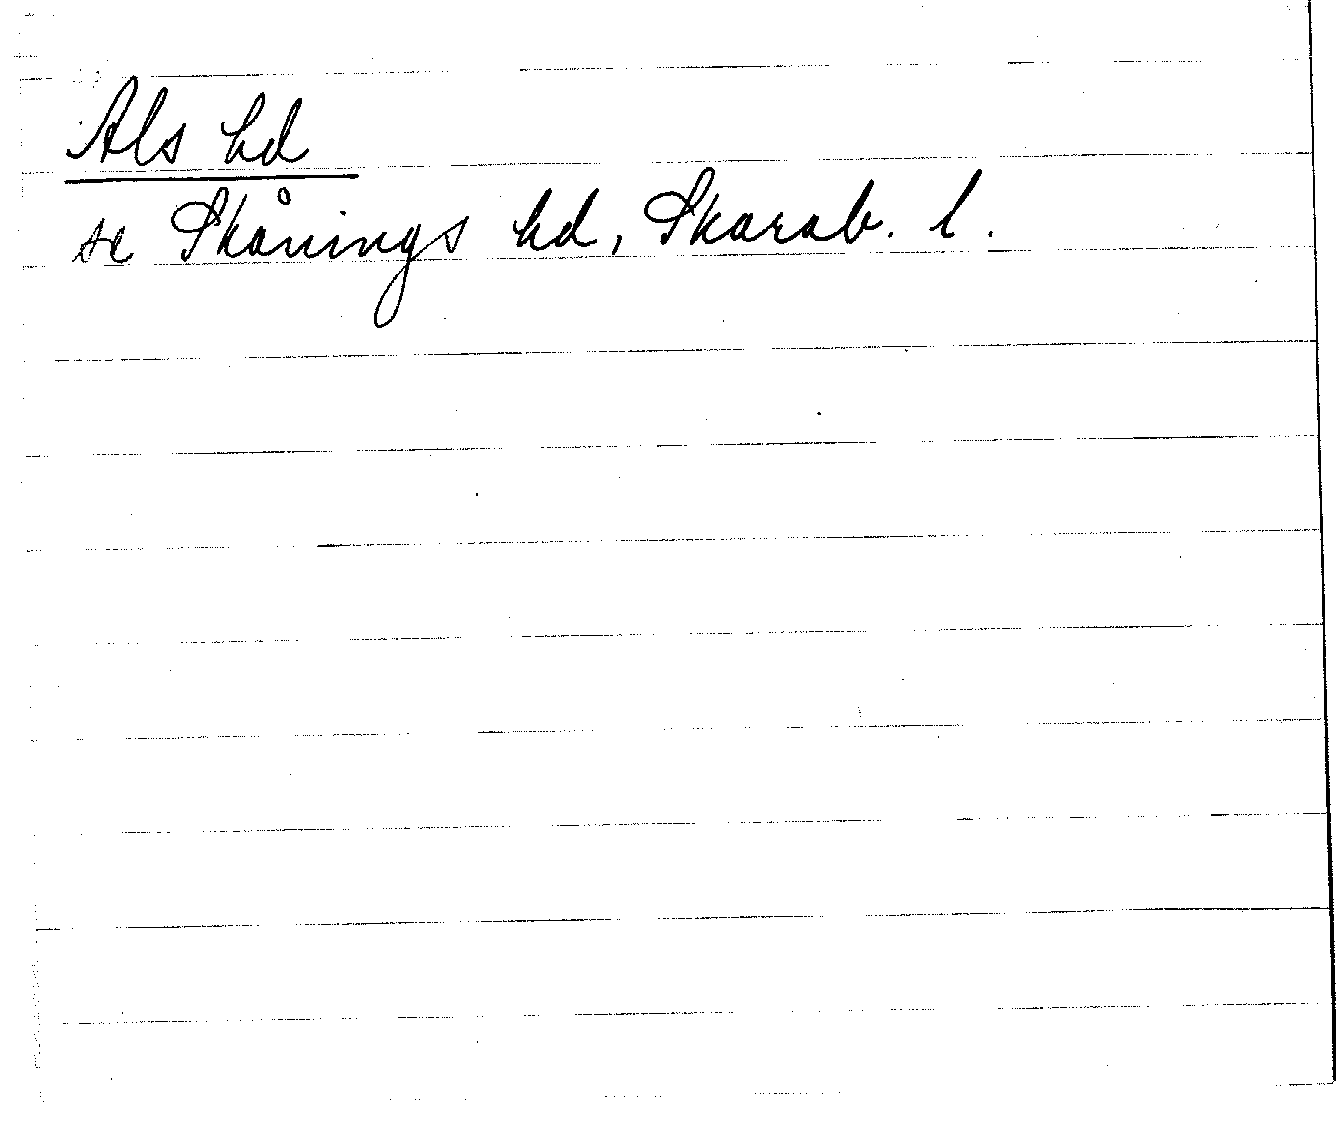 Als hd
se Skånings hd, Skarab. l.